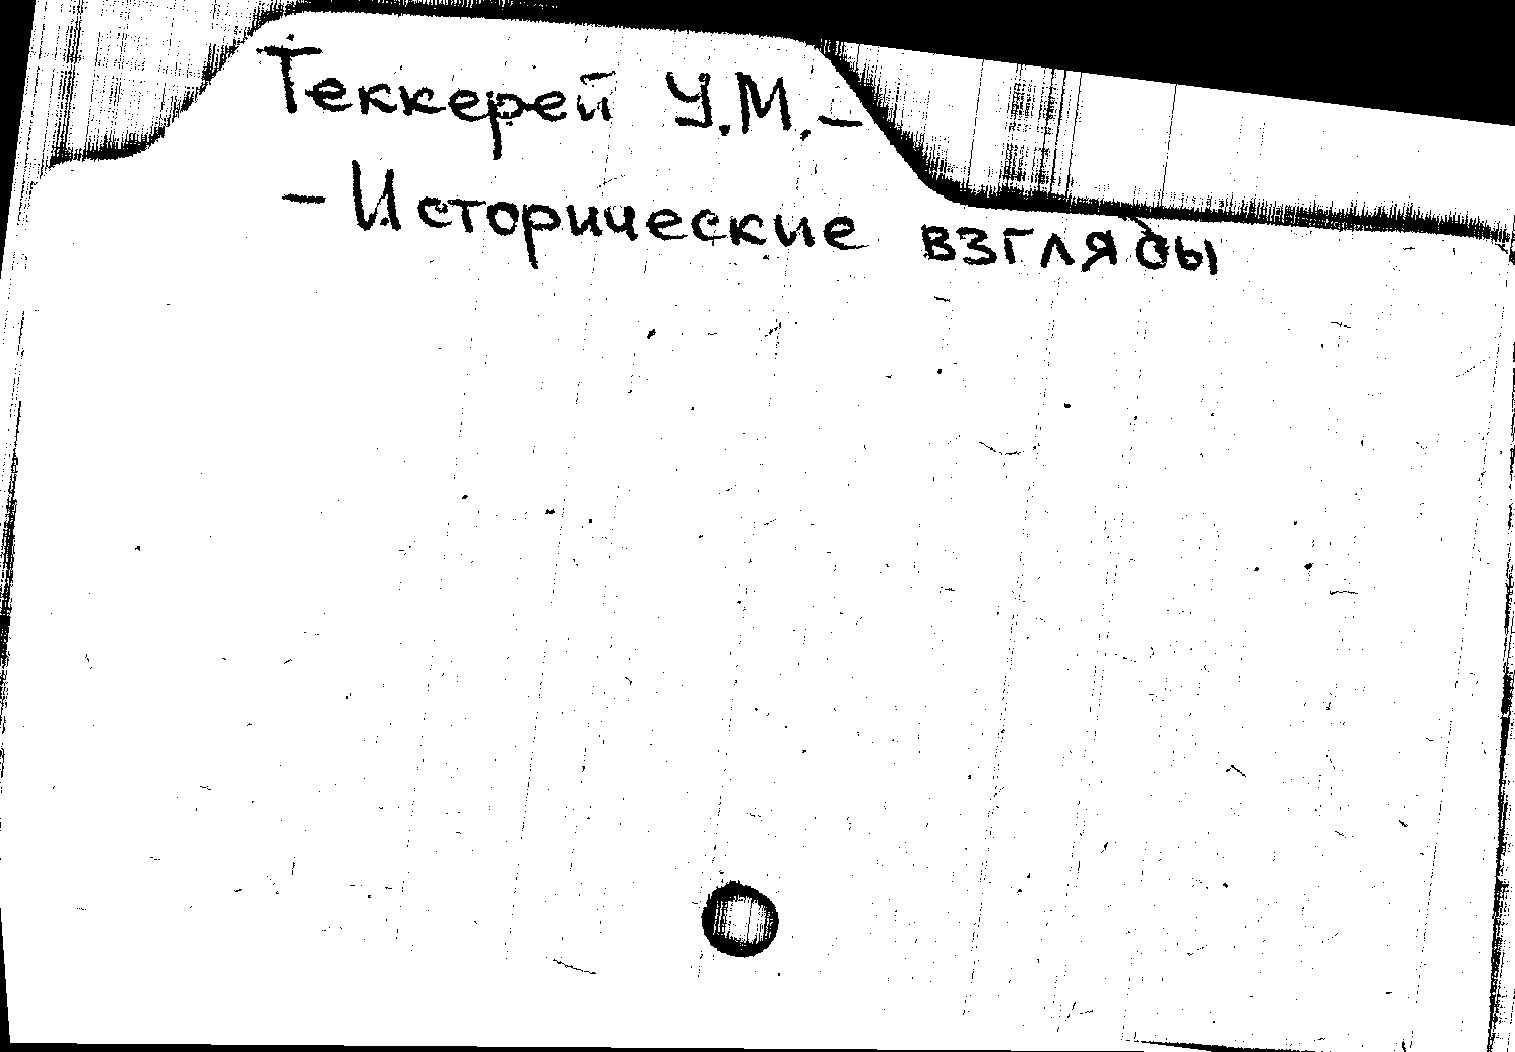 Теккерей У.М.–
– Исторические взгляды